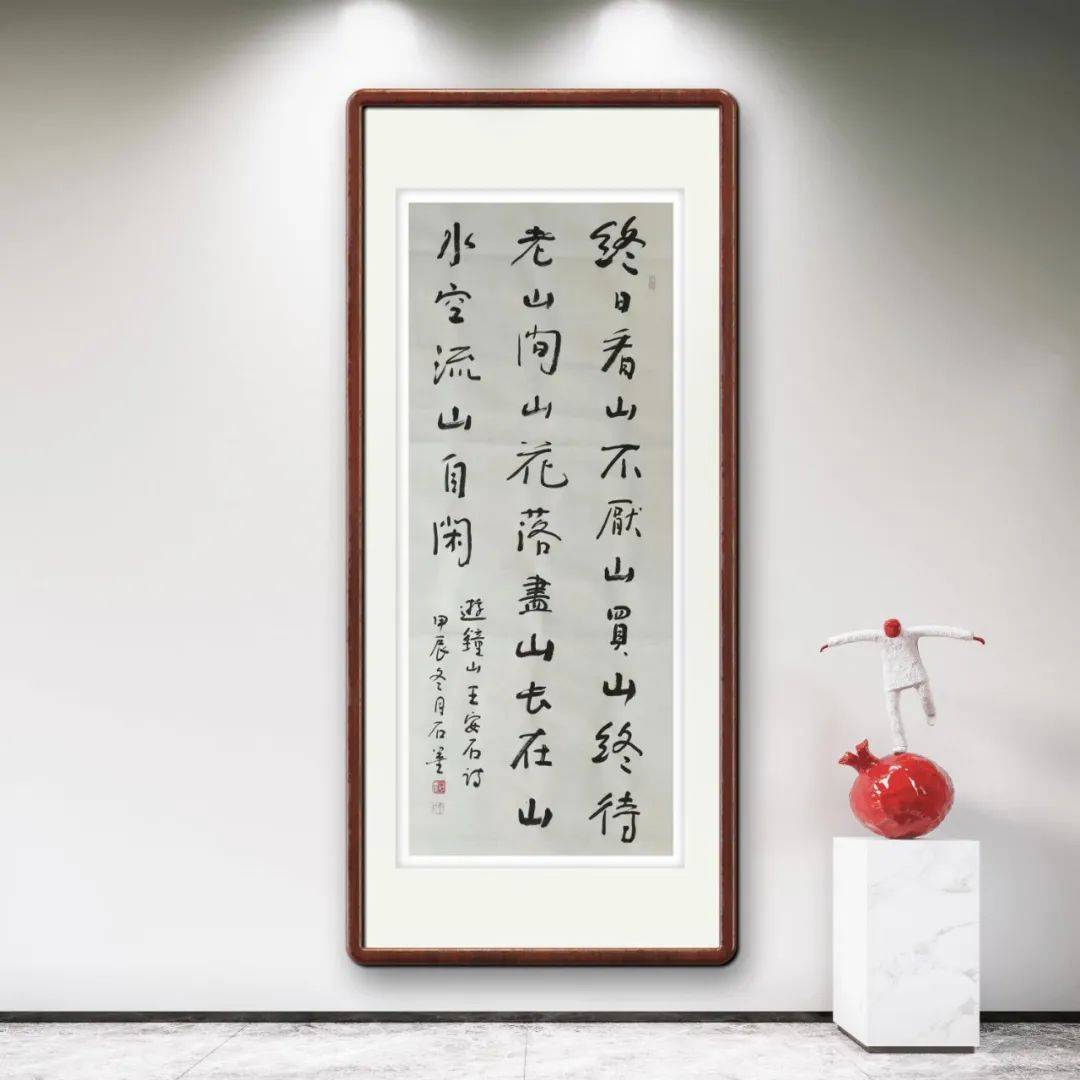 終日看山不厭山買山終待
老山間山花落盡山長在山
水空流山自閑
遊鐘山王安石詩
甲辰冬月石墨